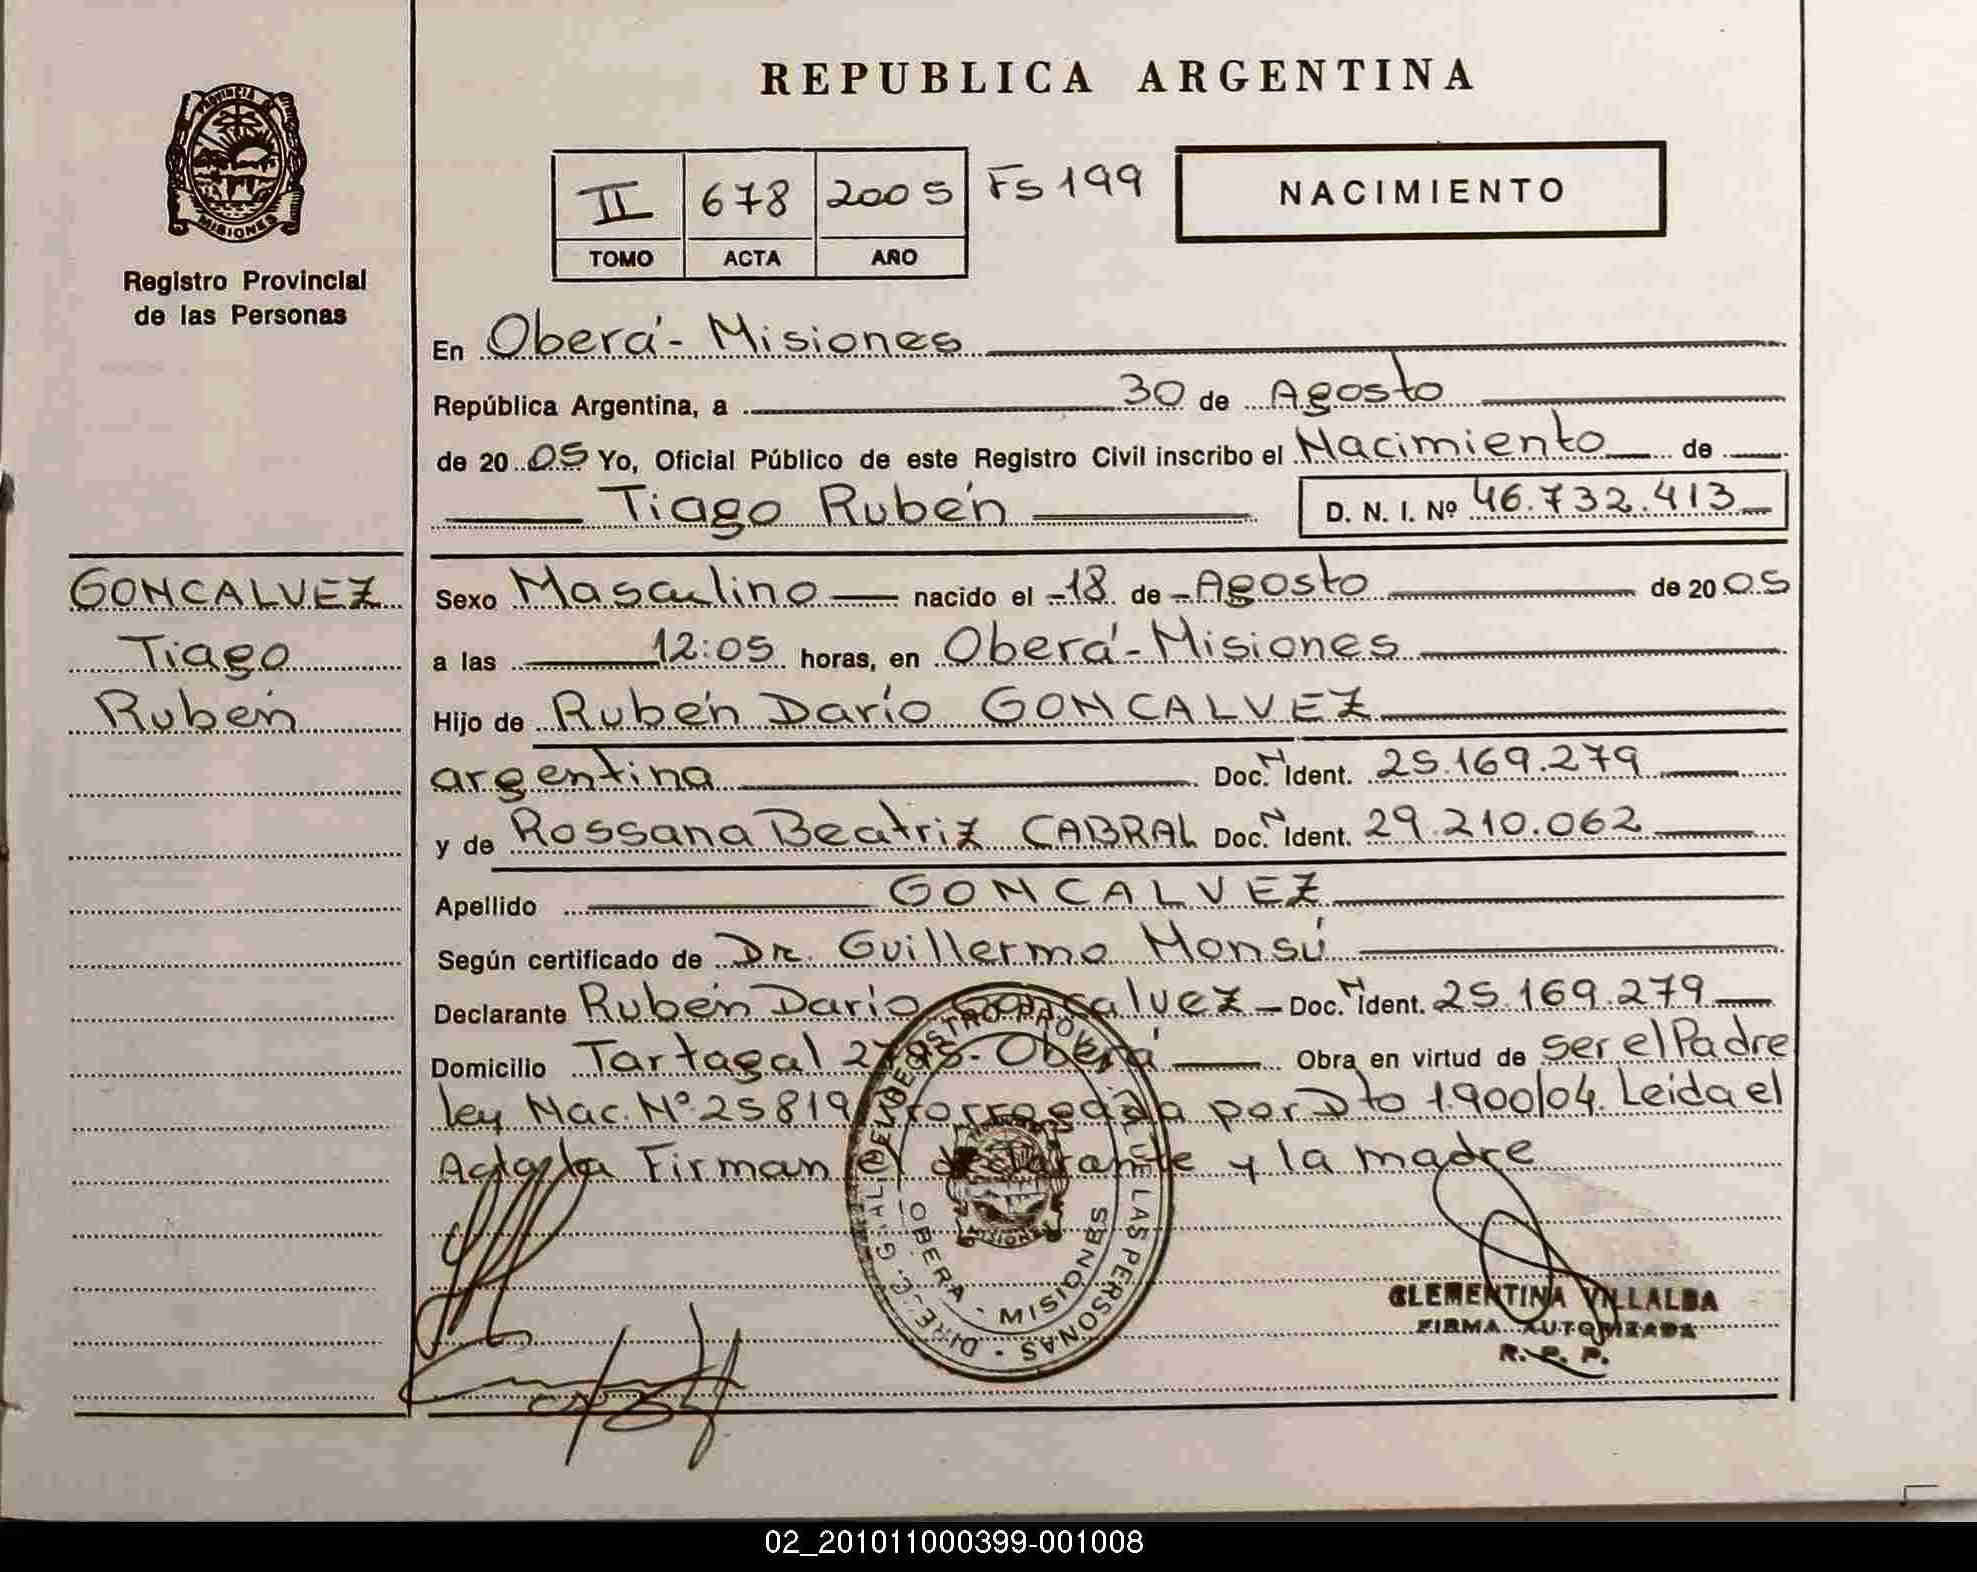 PROVINCIA DE
MISIONES
Registro Provincial
de las Personas
REPUBLICA ARGENTINA
II 678 2005 Fs 199
TOMO ACTA AÑO
NACIMIENTO
En Oberá - Misiones
República Argentina, a 30 de Agosto
de 20 05 Yo, Oficial Público de este Registro Civil inscribo el Nacimiento de
Tiago Rubén D. N. I. Nº 46.732.413
GONCALVEZ
Tiago
Rubén
Sexo Masculino nacido el 18 de Agosto de 20 05
a las 12:05 horas, en Oberá - Misiones
Hijo de Rubén Darío GONCALVEZ
argentina Doc. N Ident. 25.169.279
y de Rossana Beatriz CABRAL Doc. N Ident. 29.210.062
Apellido GONCALVEZ
Según certificado de Dr. Guillermo Monsú
Declarante Rubén Darío Goncalvez Doc. N Ident. 25.169.279
Domicilio Tartagal - Oberá Obra en virtud de ser el Padre
ley Nac. Nº 25819 Prorrogada por Dto 1900/04. Leida el
Acta la Firman el declarante y la madre
OBERA - MISIONES
CLEMENTINA VILLALBA
FIRMA AUTORIZADA
R. P. P.
02_201011000399-001008